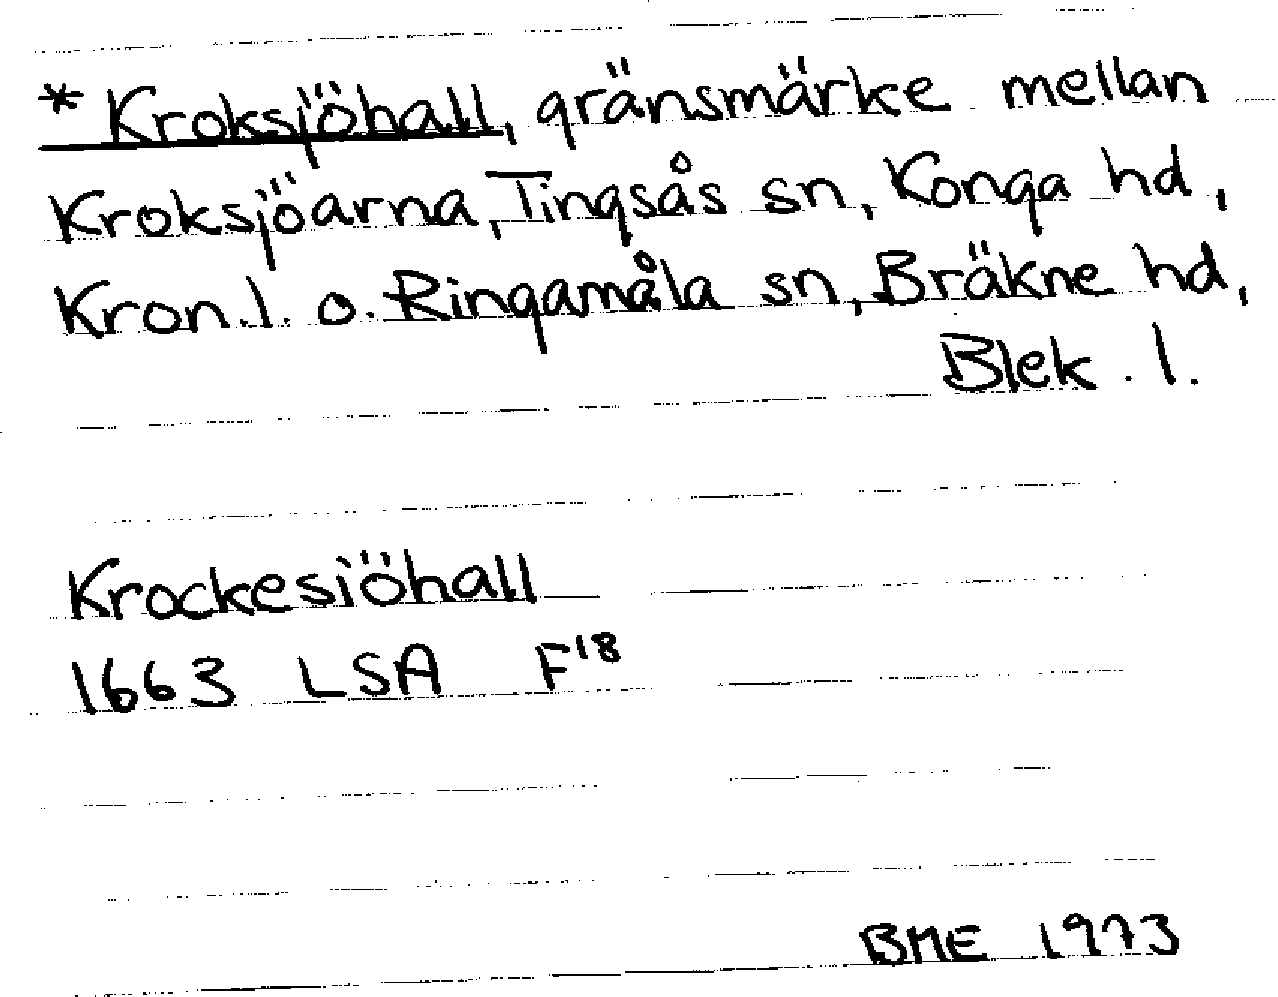 * Kroksjöhall, gränsmärke mellan
Kroksjöarna, Tingsås sn, Konga hd,
Kron.l. o. Ringamåla sn, Bräkne hd,
Blek. l.
Krockesiöhall
1663 LSA F 18
BME 1973